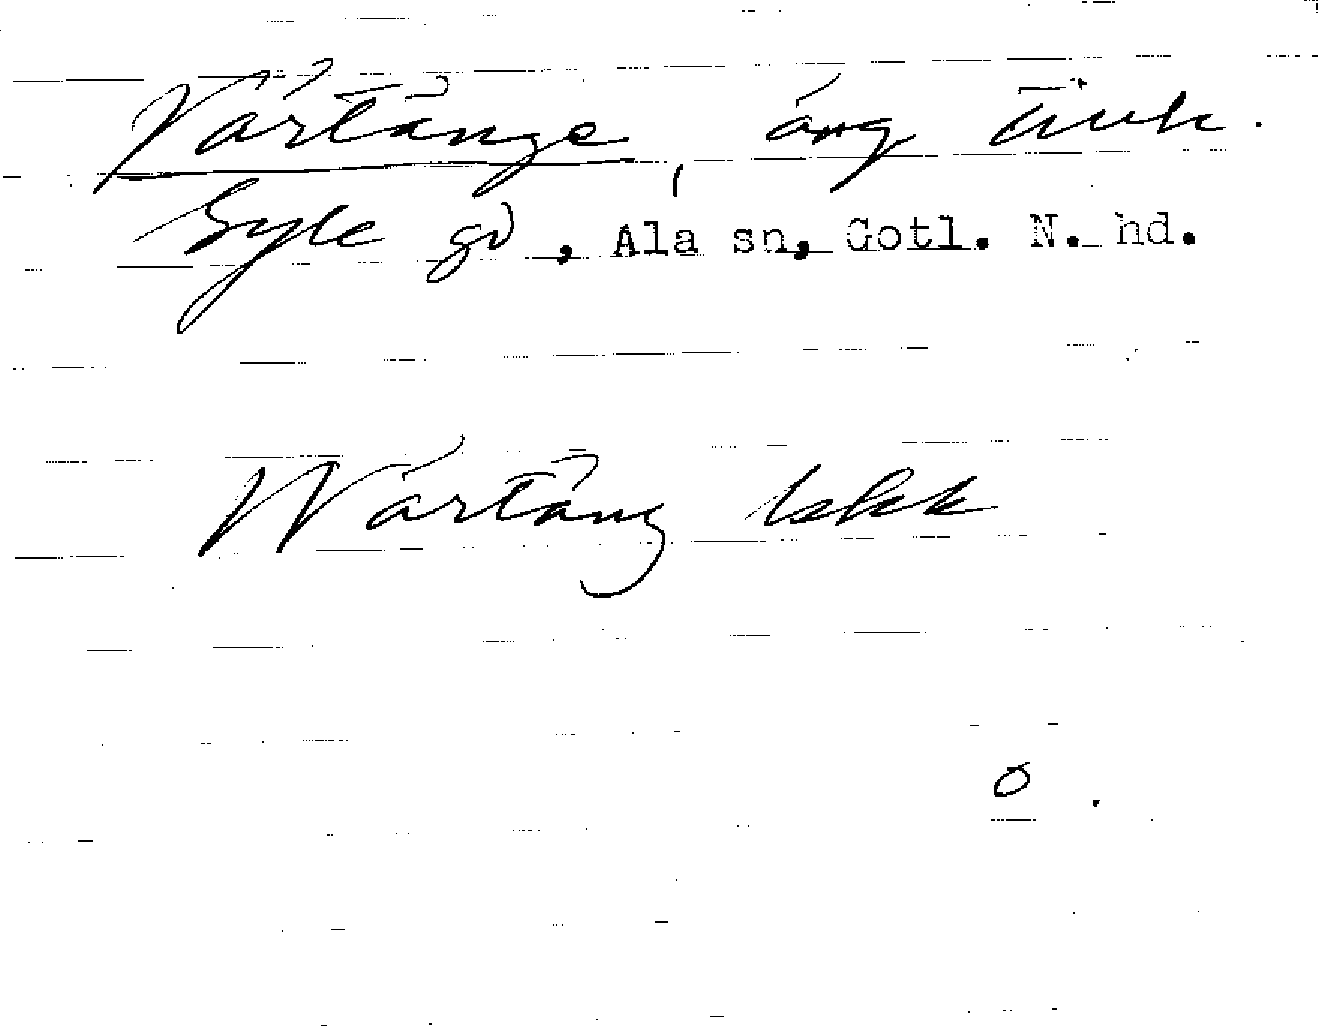 Vårtänge, äng täuh.
Gyle gd, Ala sn, Gotl. N. hd.
Wårtäng lskk
o.